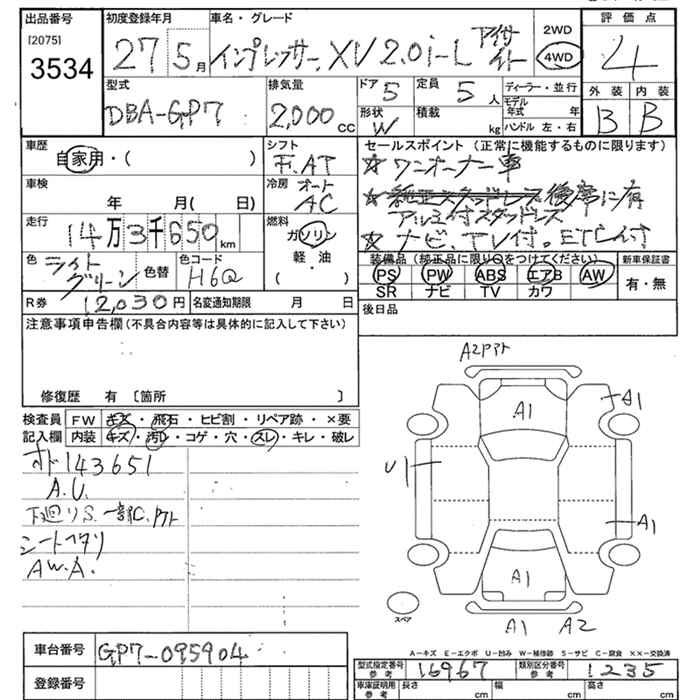 出品番号
[2075]
3534
初度登録年月
27 5月
車名・グレード
インプレッサ XV 2.0i-L アイサイト
2WD
4WD
評価点
4
外装 内装
B B
型式
DBA-GP7
排気量
2,000 cc
ドア 5
定員 5人
形状 W
積載 kg
ディーラー・並行
モデル年式 年
ハンドル 左・右
車歴
自家用・( )
シフト
F.AT
セールスポイント(正常に機能するものに限ります)
☆ ワンオーナー車
☆ 純正スタッドレス 後席に有
アルミ付スタッドレス
☆ ナビ、TV付。ETC付
車検
年 月( 日)
冷房 オート
AC
走行
14万3千650km
燃料
ガソリン
軽油
( )
色 ライト
グリーン
色替
色コード
H6Q
装備品(純正品に限り○をつけてください)
PS PW ABS エアB AW
SR ナビ TV カワ
新車保証書
有・無
R券 12,030円
名変通知期限 月 日
後日品
注意事項申告欄(不具合内容等は具体的に記入して下さい)
修復歴 有 〔箇所 〕
検査員
記入欄
FW キズ・飛石・ヒビ割・リペア跡・×要
内装 キズ・汚レ・コゲ・穴・スレ・キレ・破レ
143651
A.U.
下廻りS. 一部C.
シートヘタリ
AW.A.
A2
A1
A1
U1
A1
A1
A1 A2
スペア
A-キズ E-エクボ U-凹み W-補修跡 S-サビ C-腐食 ××-交換済
車台番号
GP7-095904
登録番号
型式指定番号
参考
16967
類別区分番号
参考
1235
車庫証明用
参考
長さ cm
幅 cm
高さ cm